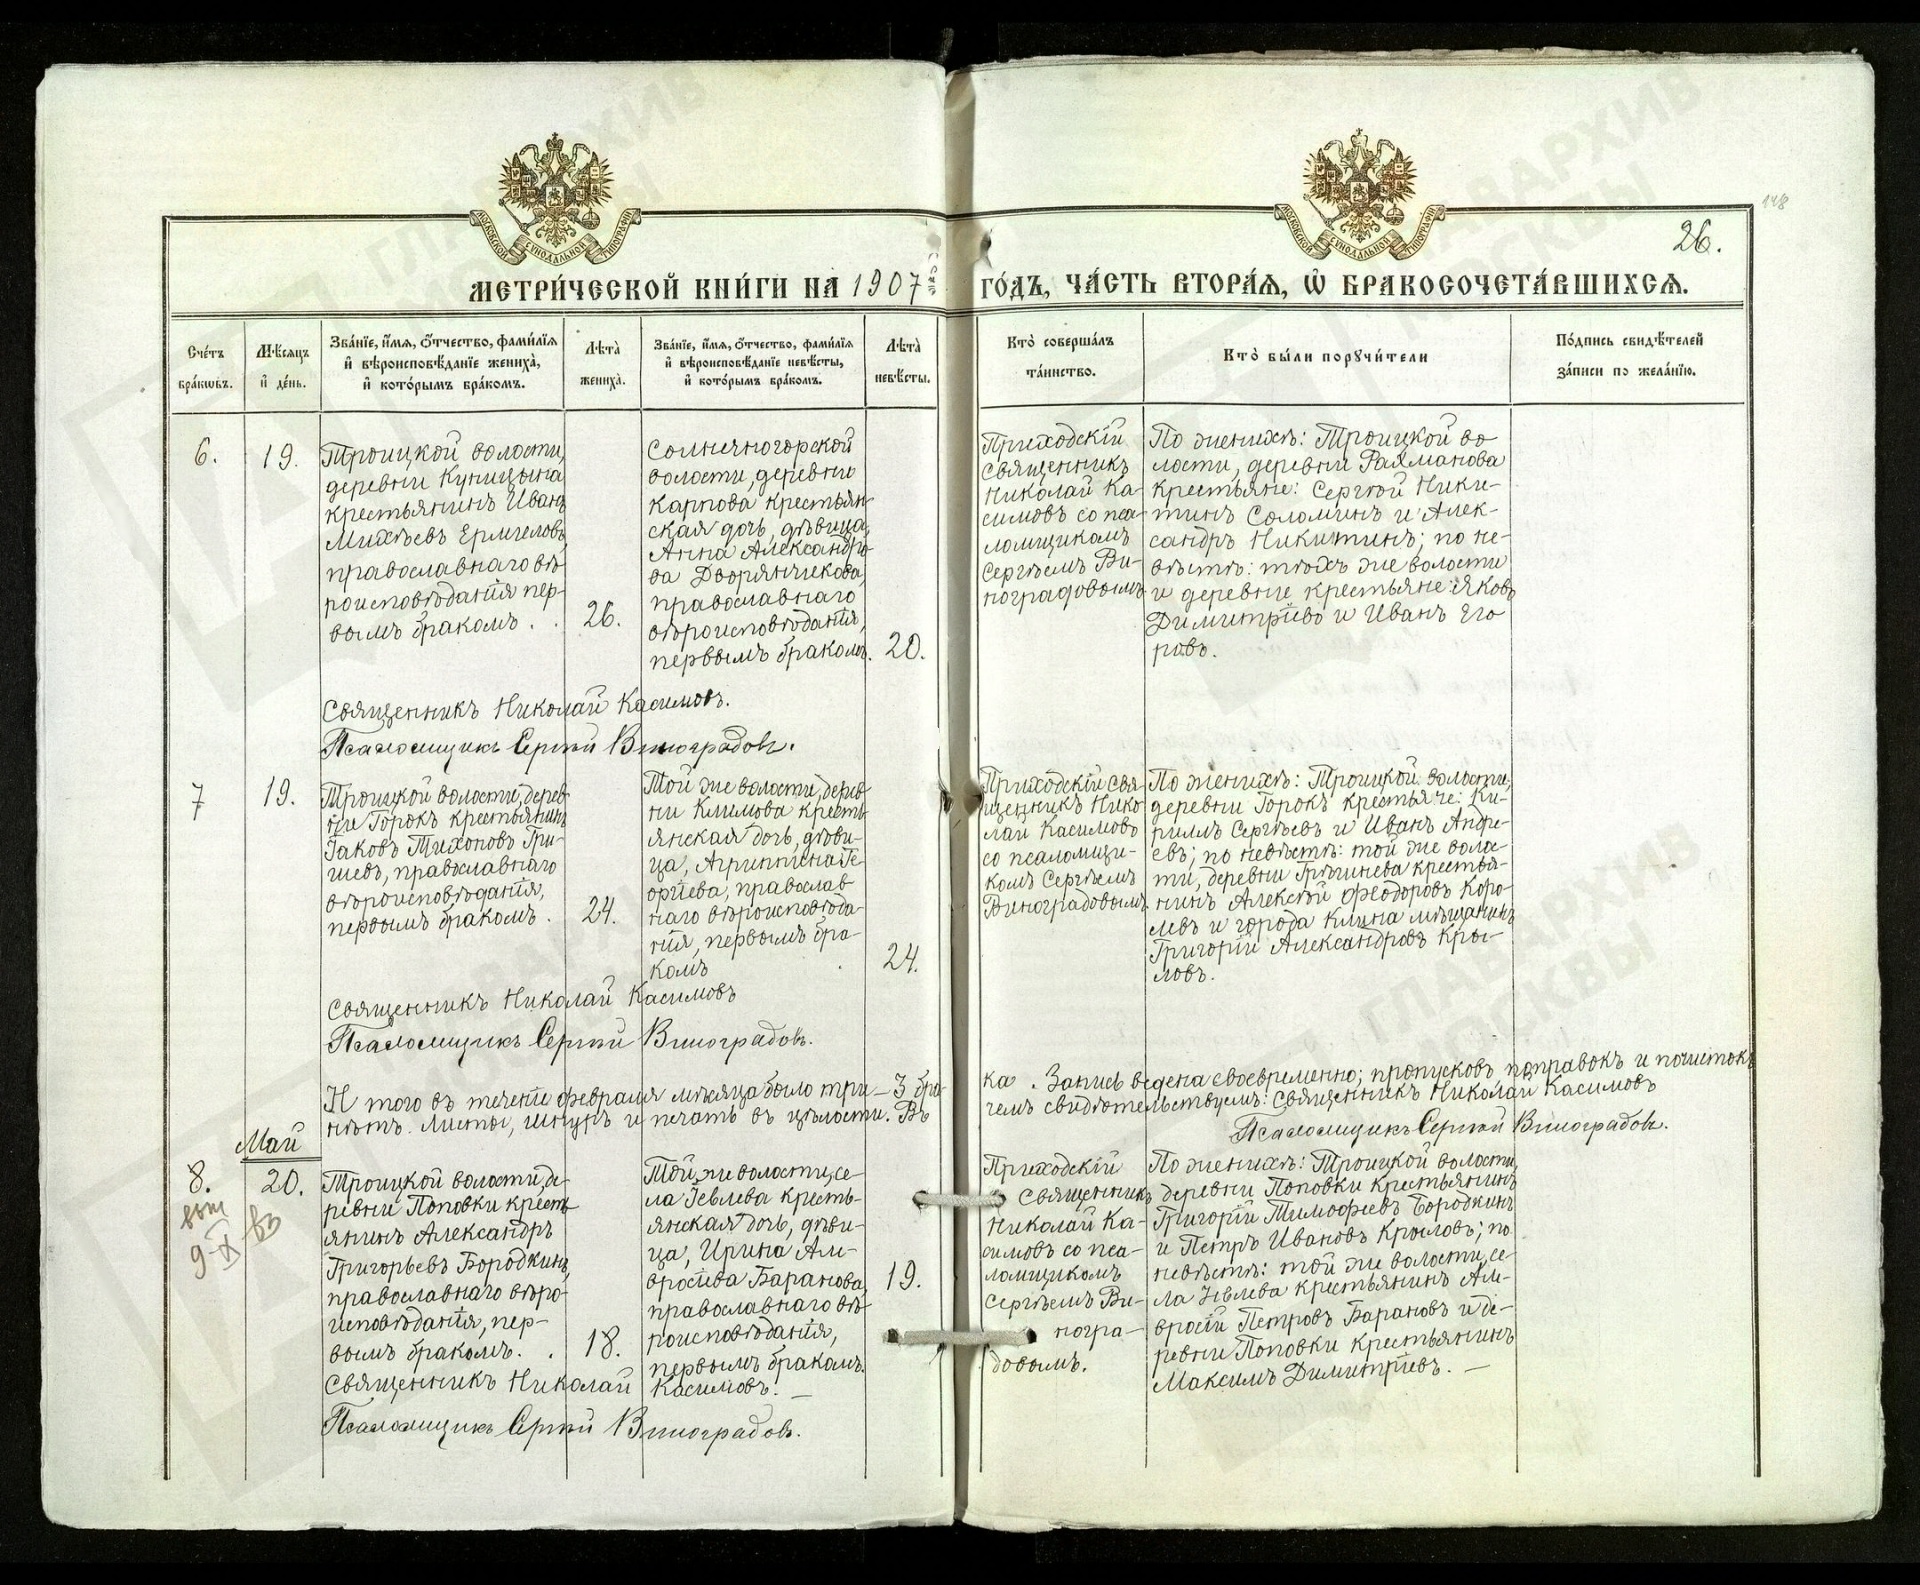 МОСКОВСКОЙ СУНОДАЛЬНОЙ ТИПОГРАФІИ
МОСКОВСКОЙ СУНОДАЛЬНОЙ ТИПОГРАФІИ
118
26.
МЕТРИ́ЧЕСКОЙ КНИ́ГИ НА 1907 ГО́ДЪ, ЧА́СТЬ ВТОРА́Я, Ѡ҆ БРАКОСОЧЕТА́ВШИХСЯ.
Сче́тъ
бра́кѡвъ.
Мѣ́сяцъ
и҆ де́нь.
Зва́нїе, и҆́мя, ѻ҆́тчество, фами́лїя
и҆ вѣроисповѣ́данїе жениха̀,
и҆ кото́рымъ бра́комъ.
Лѣта̀
жениха̀.
Зва́нїе, и҆́мя, ѻ҆́тчество, фами́лїя
и҆ вѣроисповѣ́данїе невѣ́сты,
и҆ кото́рымъ бра́комъ.
Лѣта̀
невѣ́сты.
Кто̀ соверша́лъ
та́инство.
Кто̀ бы́ли порꙋчи́тели
По́дпись свидѣ́телей
за́писи по жела́нїю.
6.
19.
Троицкой волости,
деревни Куницына
крестьянинъ Иванъ
Михѣевъ Ермиловъ,
православнаго вѣ
роисповѣданія пер-
вымъ бракомъ.
26.
Солнечногорской
волости, деревни
Карпова крестьян
ская дочь, дѣвица,
Анна Александро
ва Дворянчикова,
православнаго
вѣроисповѣданія,
первымъ бракомъ.
20.
Приходскій
священникъ
Николай Ка-
симовъ со пса-
ломщикомъ
Сергѣемъ Ви-
ноградовымъ
По женихѣ: Троицкой во
лости, деревни Рахманова
крестьяне: Сергѣй Ники-
тинъ Соломинъ и Алек-
сандръ Никитинъ; по не-
вѣстѣ: тѣхъ же волости
и деревни крестьяне: Яковъ
Димитріевъ и Иванъ Его
ровъ.
Священникъ Николай Касимовъ.
Псаломщикъ Сергѣй Виноградовъ.
7
19.
Троицкой волости, дерев
ни Горокъ крестьянинъ
Іаковъ Тихоновъ Гри-
шевъ, православнаго
вѣроисповѣданія,
первымъ бракомъ.
24.
Той же волости, дерев
ни Климова кресть
янская дочь, дѣви-
ца, Агриппина Ге-
оргіева, православ
наго вѣроисповѣда-
нія, первымъ бра-
комъ
24.
Приходскій свя
щенникъ Нико
лай Касимовъ
со псаломщи-
комъ Сергѣемъ
Виноградовымъ
По женихѣ: Троицкой волости,
деревни Горокъ крестьяне: Ки-
риллъ Сергѣевъ и Иванъ Андре-
евъ; по невѣстѣ: той же волос-
ти, деревни крестья-
нинъ Алексѣй Ѳеодоровъ Коро-
левъ и города Клина мѣщанинъ
Григорій Александровъ Кры-
ловъ.
Священникъ Николай Касимовъ
Псаломщикъ Сергѣй Виноградовъ.
Итого въ теченіе февраля мѣсяца было три – 3 бра
ка. Запись ведена своевременно; пропусковъ поправокъ и почистокъ
нѣтъ. Листы, шнуръ и печать въ цѣлости. Въ
чемъ свидѣтельствуемъ: Священникъ Николай Касимовъ
Псаломщикъ Сергѣй Виноградовъ.
Май
8.
20.
Троицкой волости, де-
ревни Поповки кресть
янинъ Александръ
Григорьевъ Бородкинъ,
православнаго вѣро
исповѣданія, пер-
вымъ бракомъ.
18.
Той же волости, се-
ла Іевлева кресть-
янская дочь, дѣви-
ца, Ирина Ам-
вросіева Баранова,
православнаго вѣ-
роисповѣданія,
первымъ бракомъ.
19.
Приходскій
священникъ
Николай Ка-
симовъ со пса-
ломщикомъ
Сергѣемъ Ви-
ногра-
довымъ.
По женихѣ: Троицкой волости,
деревни Поповки крестьянинъ
Григорій Тимоѳеевъ Бородкинъ
и Петръ Ивановъ Крыловъ; по
невѣстѣ: той же волости, се-
ла Іевлева крестьянинъ Ам-
вросій Петровъ Барановъ и де-
ревни Поповки крестьянинъ
Максимъ Димитріевъ. —
Священникъ Николай Касимовъ. —
Псаломщикъ Сергѣй Виноградовъ.